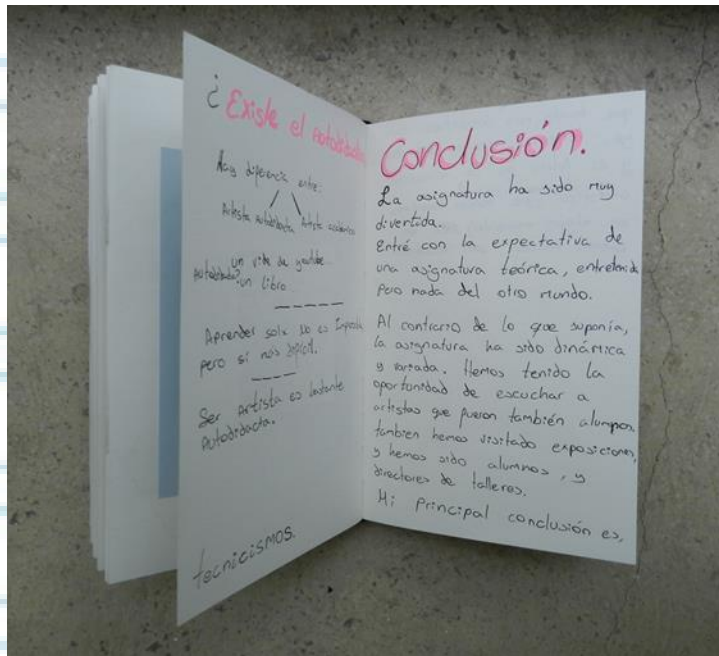 ¿ Existe el autodidacta
Hay diferencia entre..
Artista autodidacta Artista académico
un vídeo de youtube..
Autodidacta? un libro..
Aprender solx No es Imposible
pero sí más difícil.
Ser Artista es bastante
Autodidacta.
tecnicismos.
Conclusión.
La asignatura ha sido muy
divertida.
Entré con la expectativa de
una asignatura teórica, entretenida
pero nada del otro mundo.
Al contrario de lo que suponía,
la asignatura ha sido dinámica
y variada. Hemos tenido la
oportunidad de escuchar a
artistas que fueron también alumnos,
tambien hemos visitado exposiciones,
y hemos sido alumnos, y
directores de talleres.
Mi principal conclusión es,